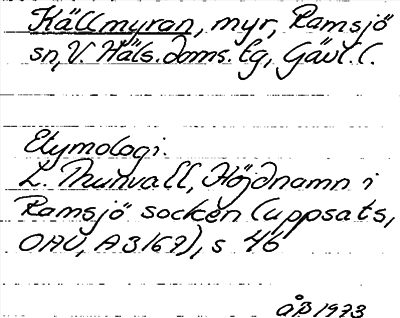 Källmyran, myr, Ramsjö
sn, V. Häls. doms. tg, Gävl. l.
Etymologi.
L. Thunvall, Höjdnamn i
Ramsjö socken (uppsats,
OAU, A3169), s 46
åB 1973